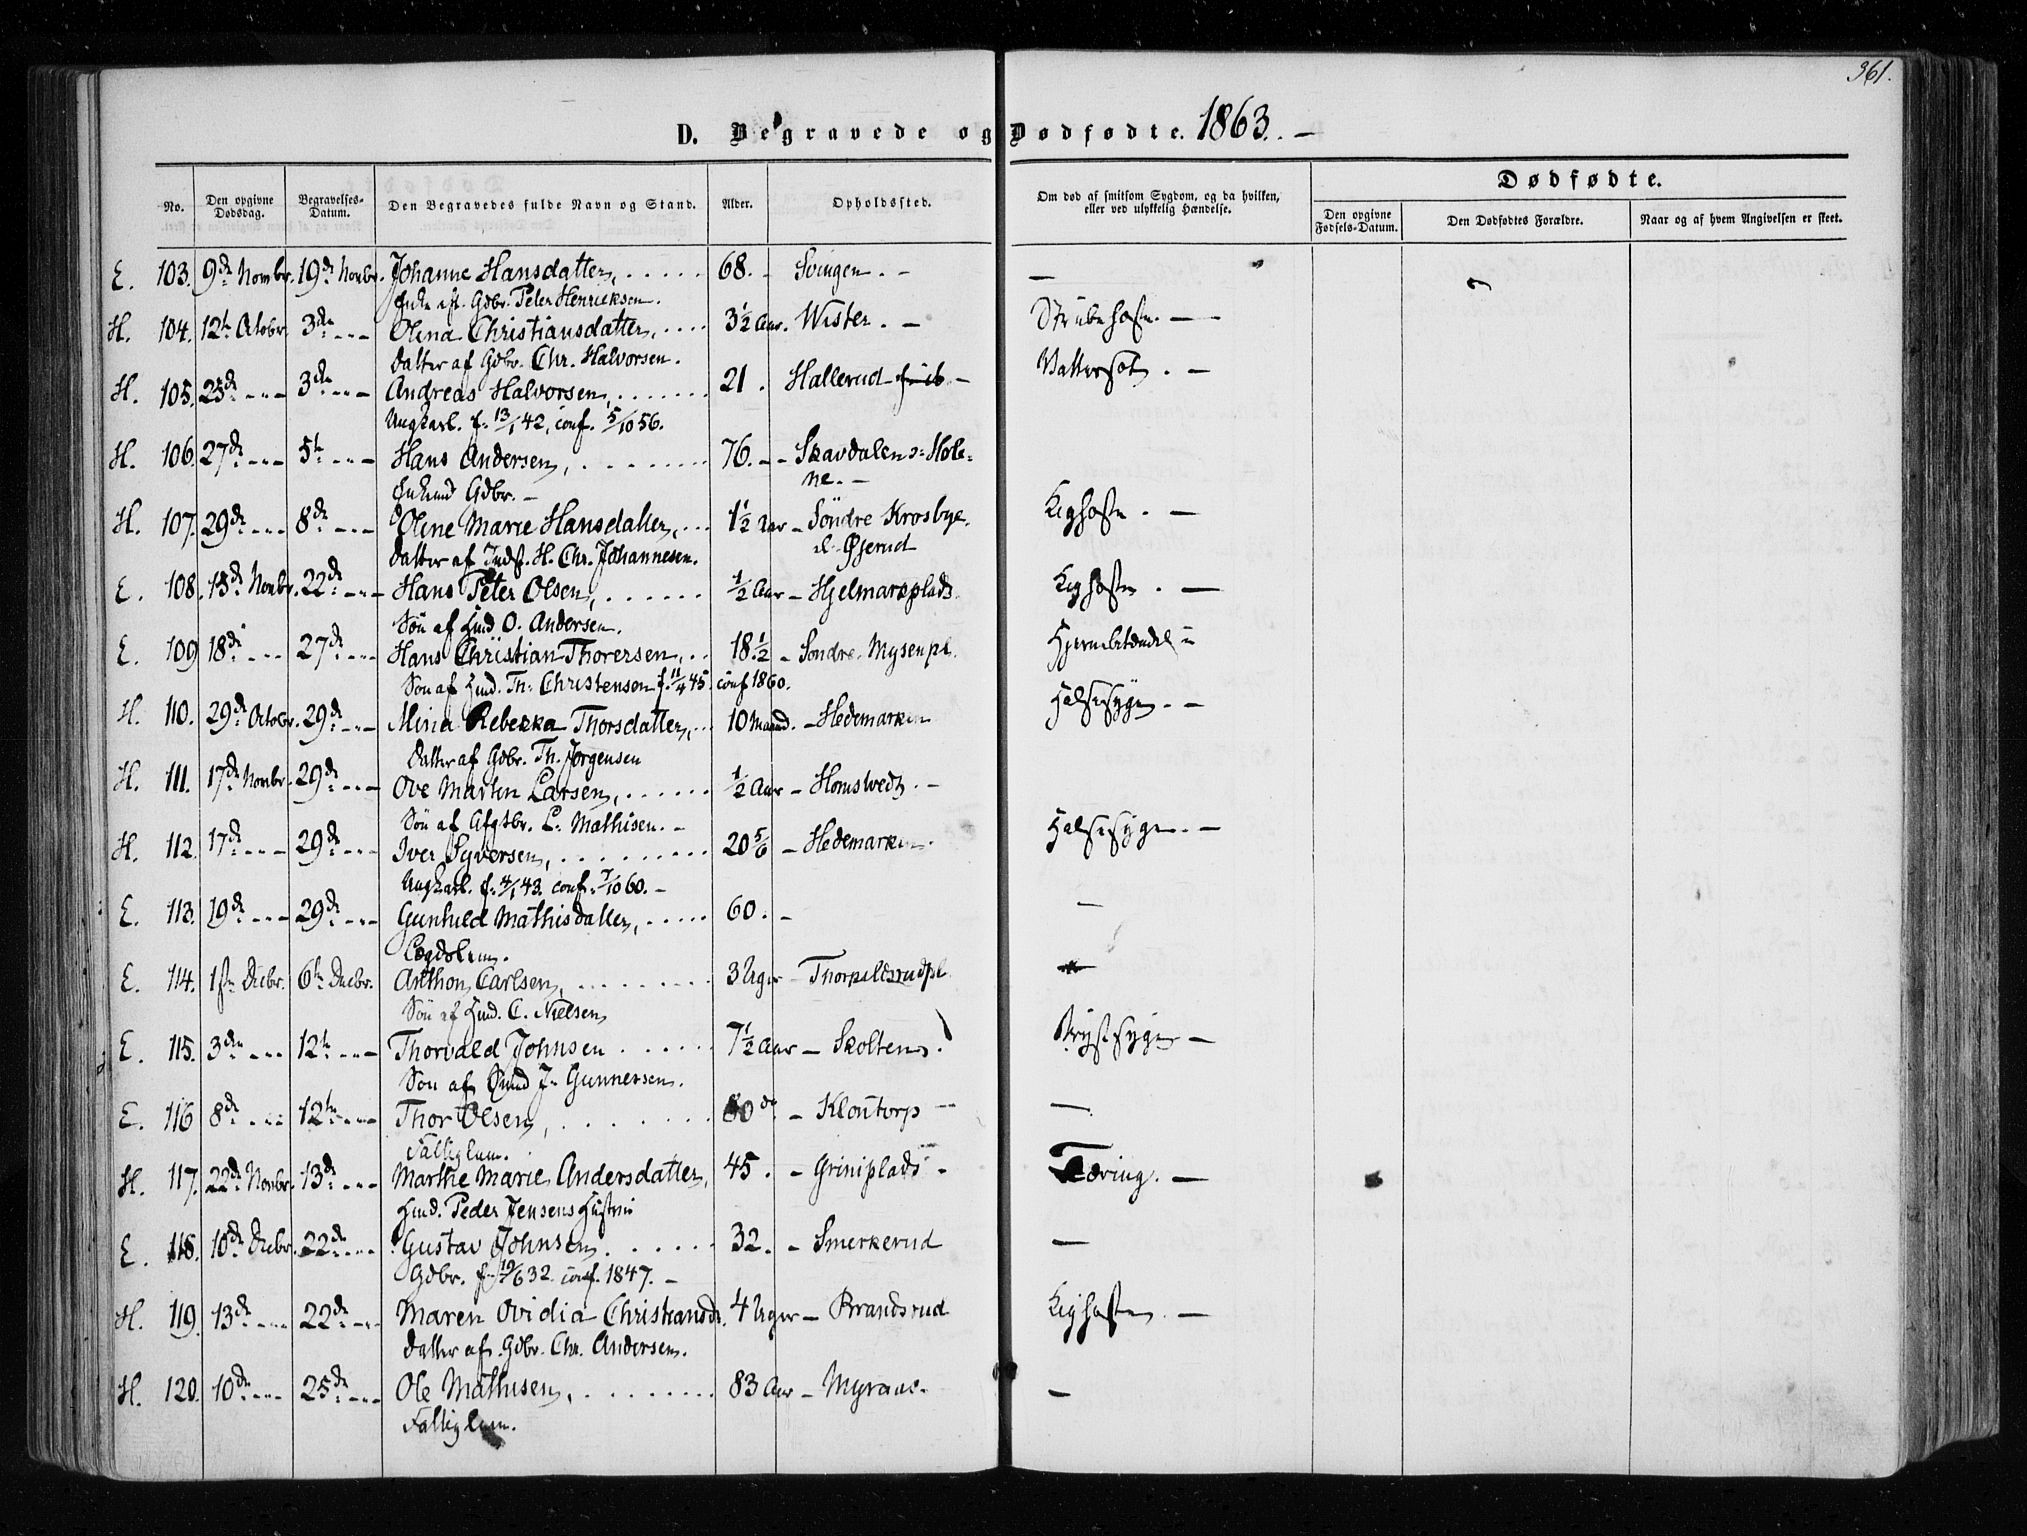 361.
D. Begravede og Dødfødte. 1863. –
No. Den opgivne Dødsdag. Begravelses-Datum. Den Begravedes fulde Navn og Stand. Alder. Opholdssted. Om død af smitsom Sygdom, og da hvilken, eller ved ulykkelig Hændelse. Dødfødte.
Den opgivne Fødsels-Datum. Den Dødfødtes Forældre. Naar og af hvem Angivelsen er skeet.
E. 103. 9de Novbr. 19de Novbr. Johanne Hansdatter, 68. – Svingen. – –
Enke eft. Gdbr. Peter Henricksen.
H. 104. 12te Octobr. 3die Olena Christiansdatter, 3½ Aar. Wister. – Strubehoste. –
Datter af Gdbr. Chr. Halvorsen.
H. 105. 23de 3die Andreas Halvorsen, 21. Hallerud – Vattersot. –
Ungkarl. f. 13/1 42, conf. 5/10 56.
H. 106. 27de 5te Hans Andersen, 76. – – Skavdalen i Hole-
ne. –
Enkemd Gdbr. –
H. 107. 29de 8de Oline Marie Hansdatter, 1½ Aar – Søndre Krosbye. Kighoste. –
Datter af Indst. H. Chr. Johannesen. Øjerud
E. 108. 13de Novbr. 22de Hans Peter Olsen, ½ Aar – Hjelmarkplads. Kighoste. –
Søn af Hmd O. Andersen.
E. 109 18de 27de Hans Christian Thorersen, 18½ – Søndre Mysenpl. Hjernebetændelse
Søn af Hmd. Th. Christensen f. 11/4 45. conf 1860.
H. 110. 29de Octobr. 29de Mina Rebekka Thorsdatter, 10 Maand. – Hedemarken Halssyge. –
Datter af Gdbr. Th. Jørgensen
H. 111. 17de Novbr. 29de Ove Martin Larsen, ½ Aar – Homstvedt. –
Søn af Afgtbr. L. Mathisen. –
H. 112. 17de 29de Iver Syversen, 20 5/6 – Hedemarken. Halssyge. –
Ungkarl. f. 4/1 43. conf. 7/10 60. –
E. 113. 19de 29de Gunhild Mathisdatter, 60. – –
Lægdslem.
E. 114. 1ste Decbr. 6te Decbr. Anthon Carlsen, 3 Uger – Thorkildsrudpl.
Søn af Hmd. C. Nielsen
E. 115. 3die 12te Thorvald Johnsen 7½ Aar – Skolten. Brystsyge –
Søn af Hmd J. Gunnersen.
E. 116 8de 12te Thor Olsen, 80 – Kloutorp – –
Fattiglem.
H. 117. 22de Novbr. 13de Marthe Marie Andersdatter, 45. – Griniplads – Tæring. –
Hmd. Peder Jensens Hustru
E. 118. 10de Decbr. 22de Gustav Johnsen. 32. – Smerkerud –
Gdbr. f. 19/6 32. conf. 1847. –
H. 119. 13de 22de Maren Ovidia Christiansdr. 4 Uger – Brandsrud Kighoste. –
Datter af Gdbr. Chr. Andersen.
H. 120. 10de 25de Ole Mathisen, 83 Aar – Myrane. –
Fattiglem.